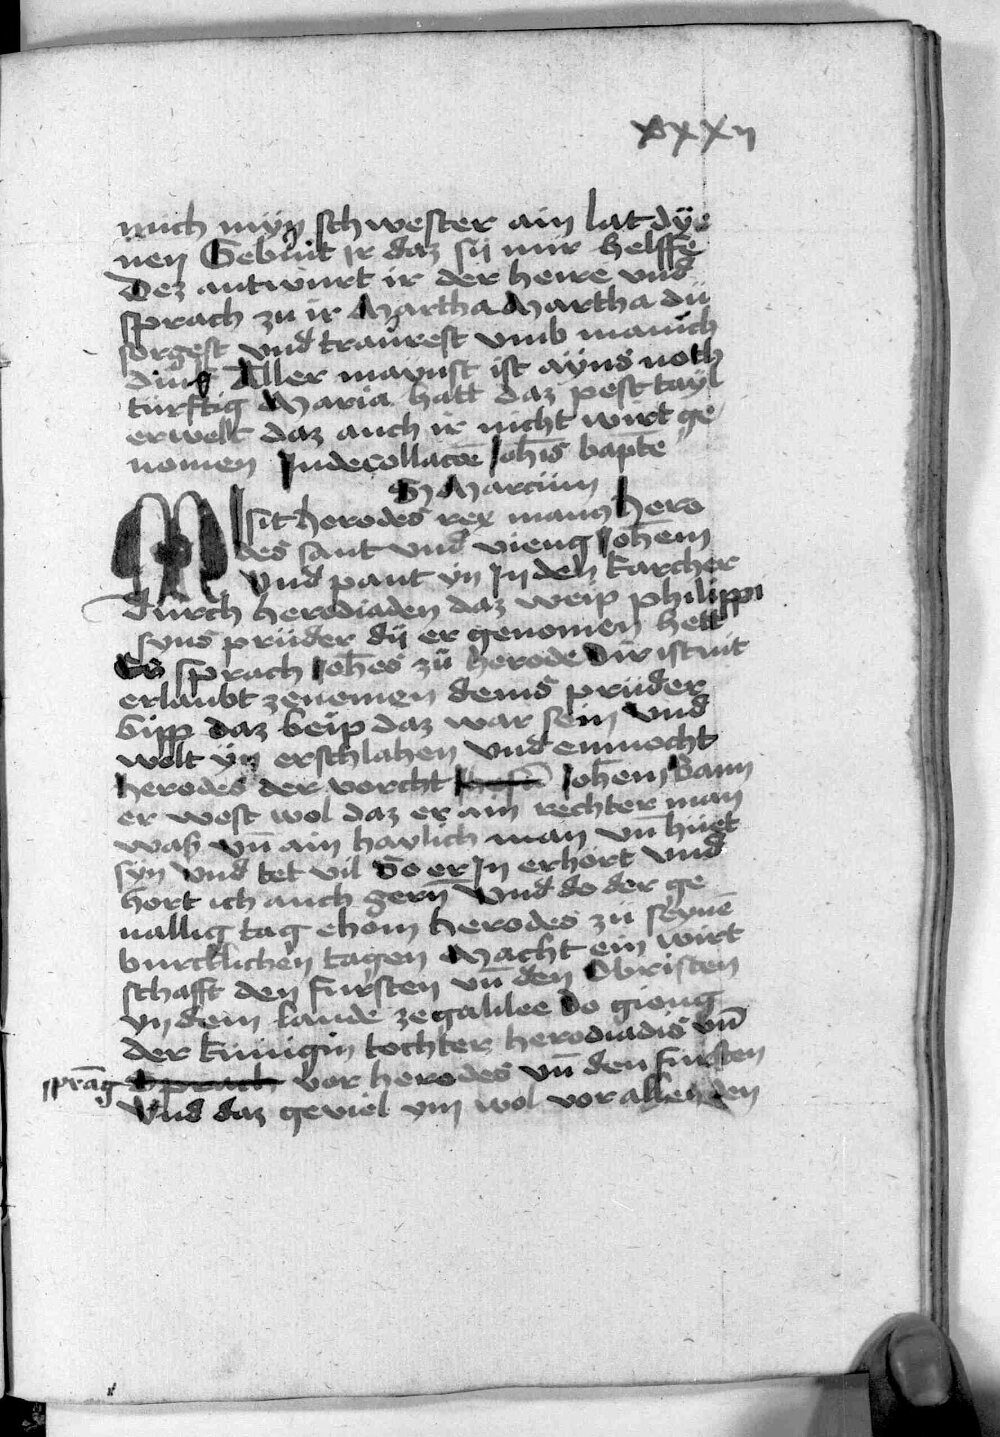 xxxij
mich mÿn schwester ain lat dÿe
nen Gebiüt ir daz sij mir helffe
Dez antwürt ir der herre vnd
sprach zu ir Martha Martha dü
sorgest vnd traürest vmb manich
ding Aller maynst ist aÿns noth
türftig Maria hatt daz pest tayl
erwelt daz auch ir nicht wirt ge
nomen In decollacōe Joh̄is bap̄te
S Marcum
Misit herodes rex manus hero
des sant vnd vieng Joh̄em
vnd pant ÿn In den karcher
durch herodiaden daz weip philippi
syns prüder dÿ er genomen hett
Es sprach Joh̄es zü herode Dir ist nit
erlaubt zenemen deins prüder
weip daz war sein vnd
wolt ÿn erschlahen vnd enmocht
herodes der vorcht Joh̄em Wann
er west wol daz er ain rechter man
waß vn̄ ain haylich man vn̄ hüet
syn vnd tet vil So er In erhort vnd
hort ich auch gern̄ Vnd do der ge
uallig tag chom herodes zü seyne̅
burcklichen tagen Macht ein wirt
schafft den fursten vn̄ den Obristen
yn dem lande ze galilee Do gieng
der künigin tochter herodiadis vn̄
sprāg sprach vor herodes vn̄ den fursten
Vnd daz geviel ym wol vor allen den